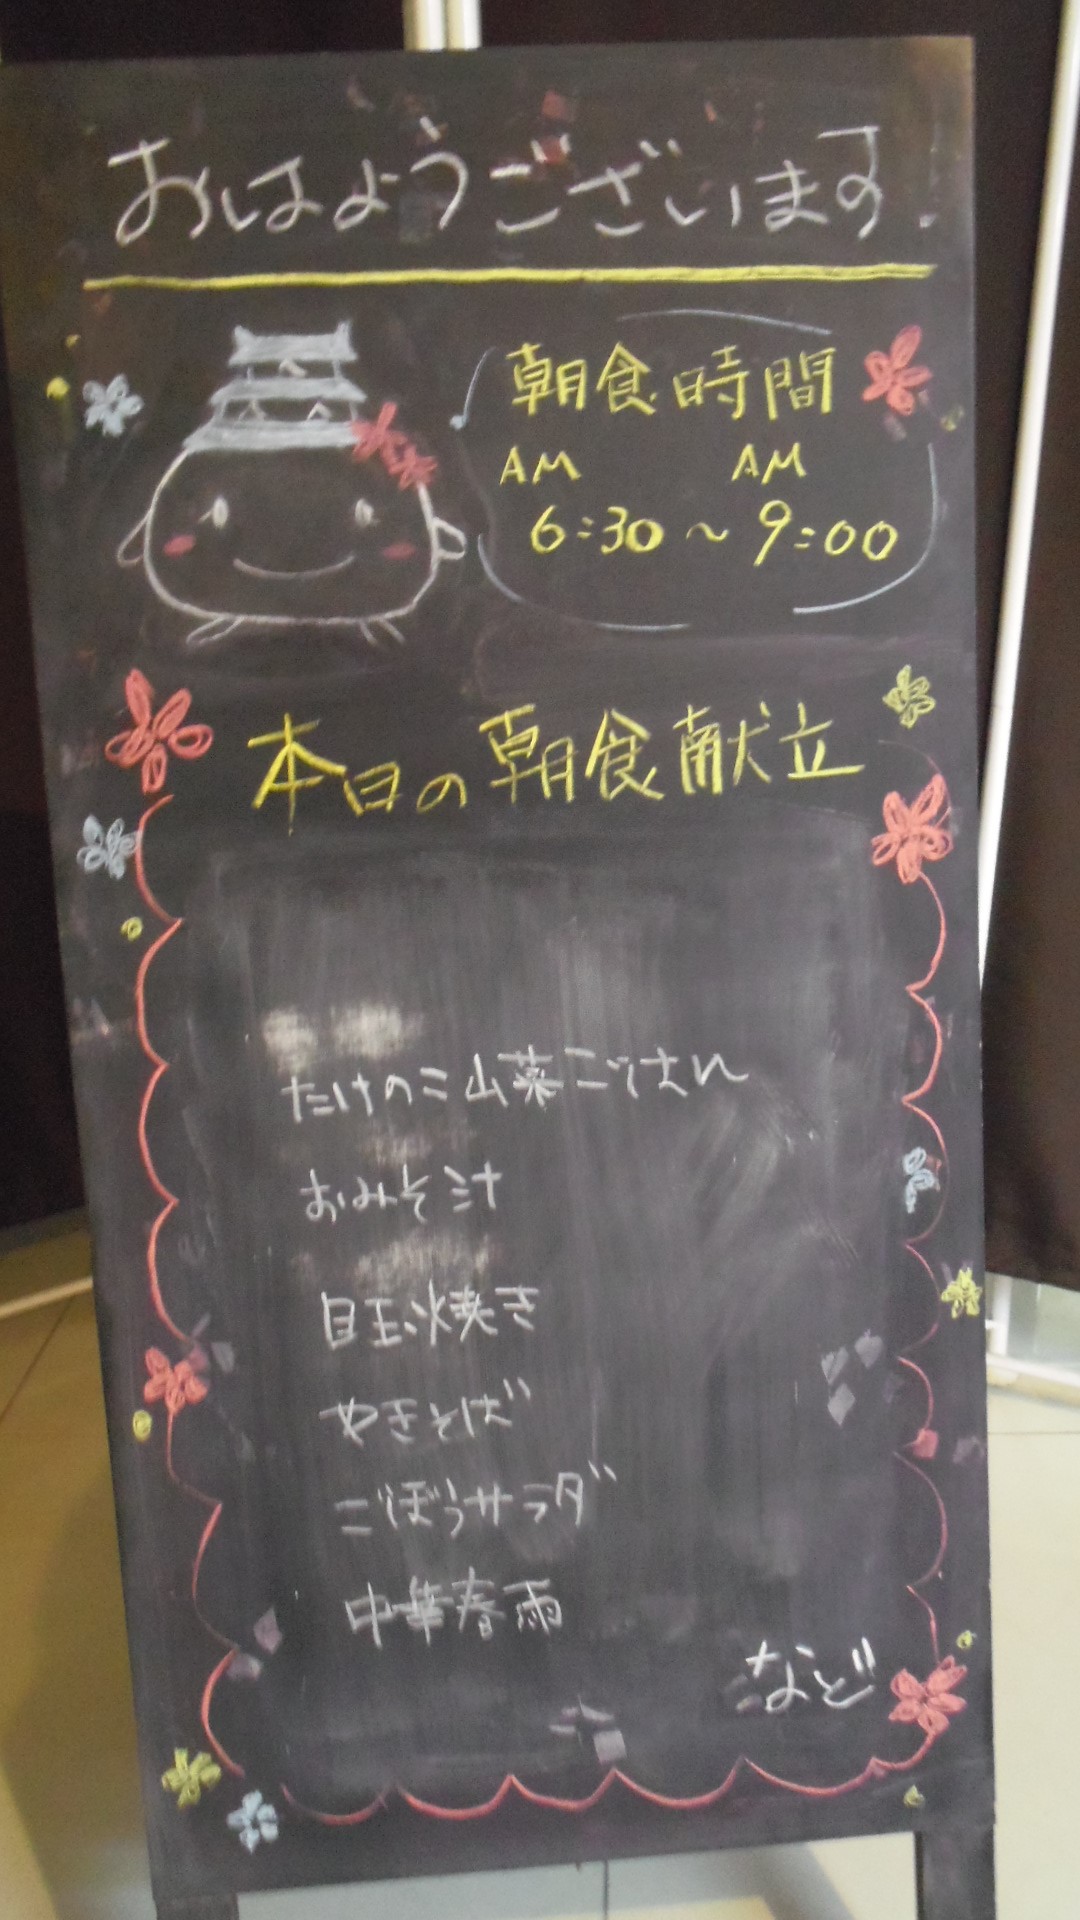 おはようございます.
朝食時間
AM AM
6:30～9:00
本日の朝食献立
たけのこ山菜ごはん
おみそ汁
目玉焼き
やきそば
ごぼうサラダ
中華春雨
など